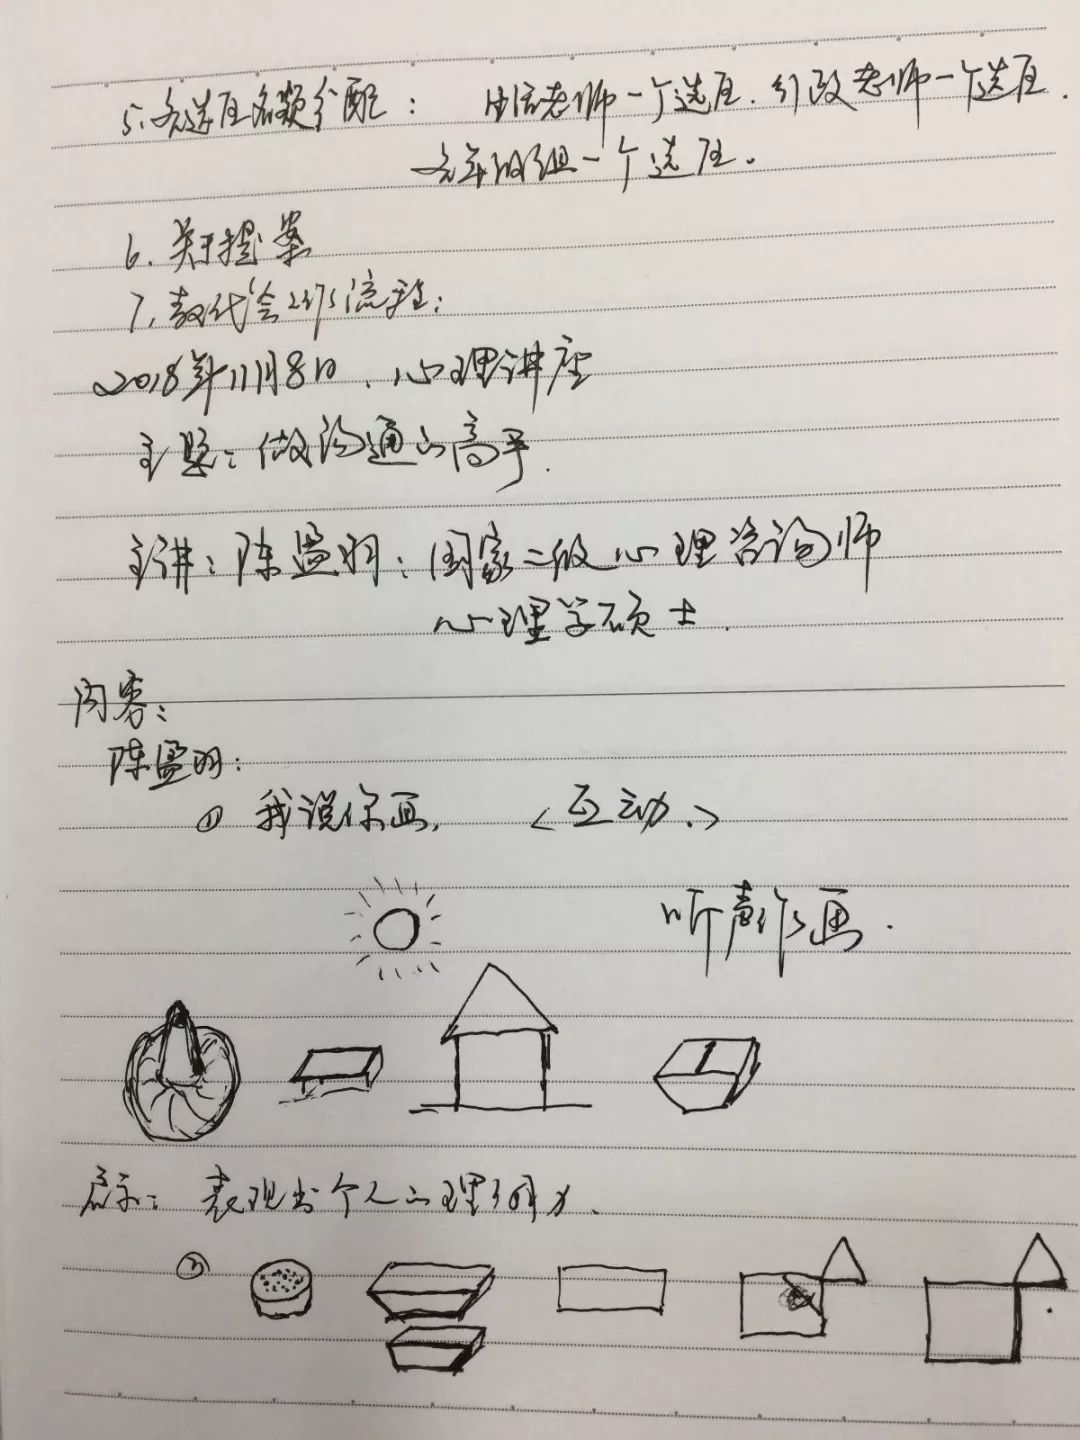 5、各选区名额分配： 生活老师一个选区.行政老师一个选区.
各年级组一个选区.
6、关于提案
7、教代会工作流程:
2018年11月8日、心理讲座
主题：做沟通的高手.
主讲：陈盈羽：国家二级心理咨询师
心理学硕士.
内容：
陈盈羽：
① 我说你画, <互动.>
听声作画.
启示：表现出个人心理
②